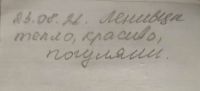 23.08.21. Ленивцы
тепло, красиво,
погуляли.